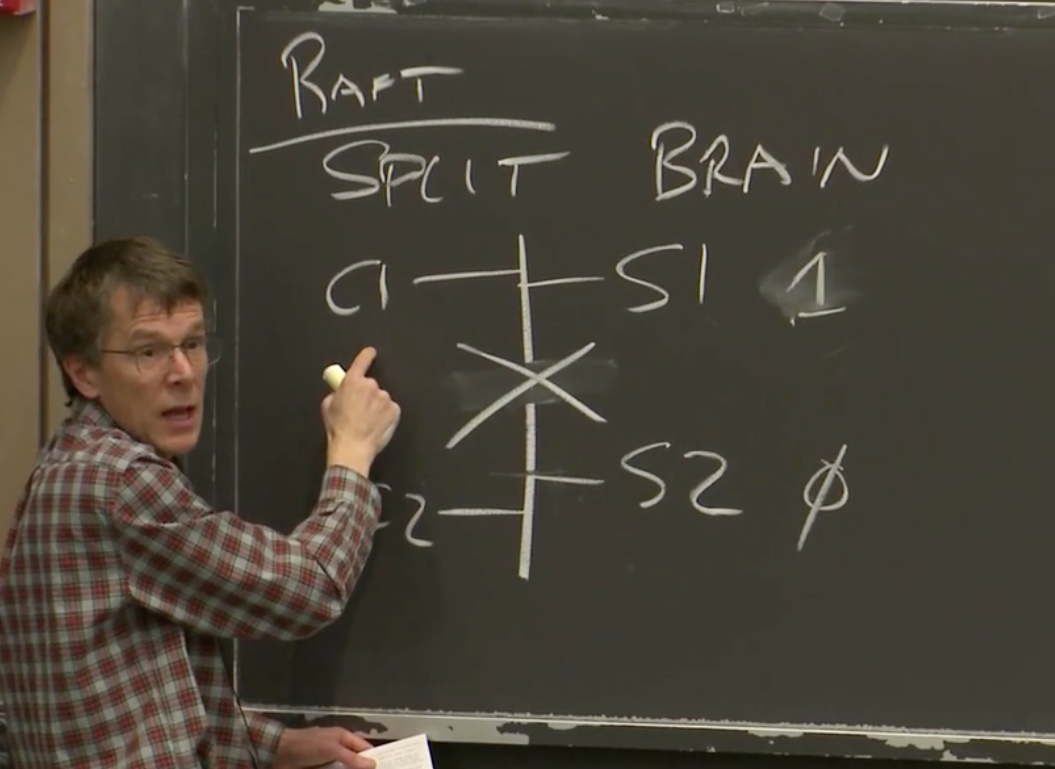 RAFT
SPLIT BRAIN
C1 S1 1
S2 Ø